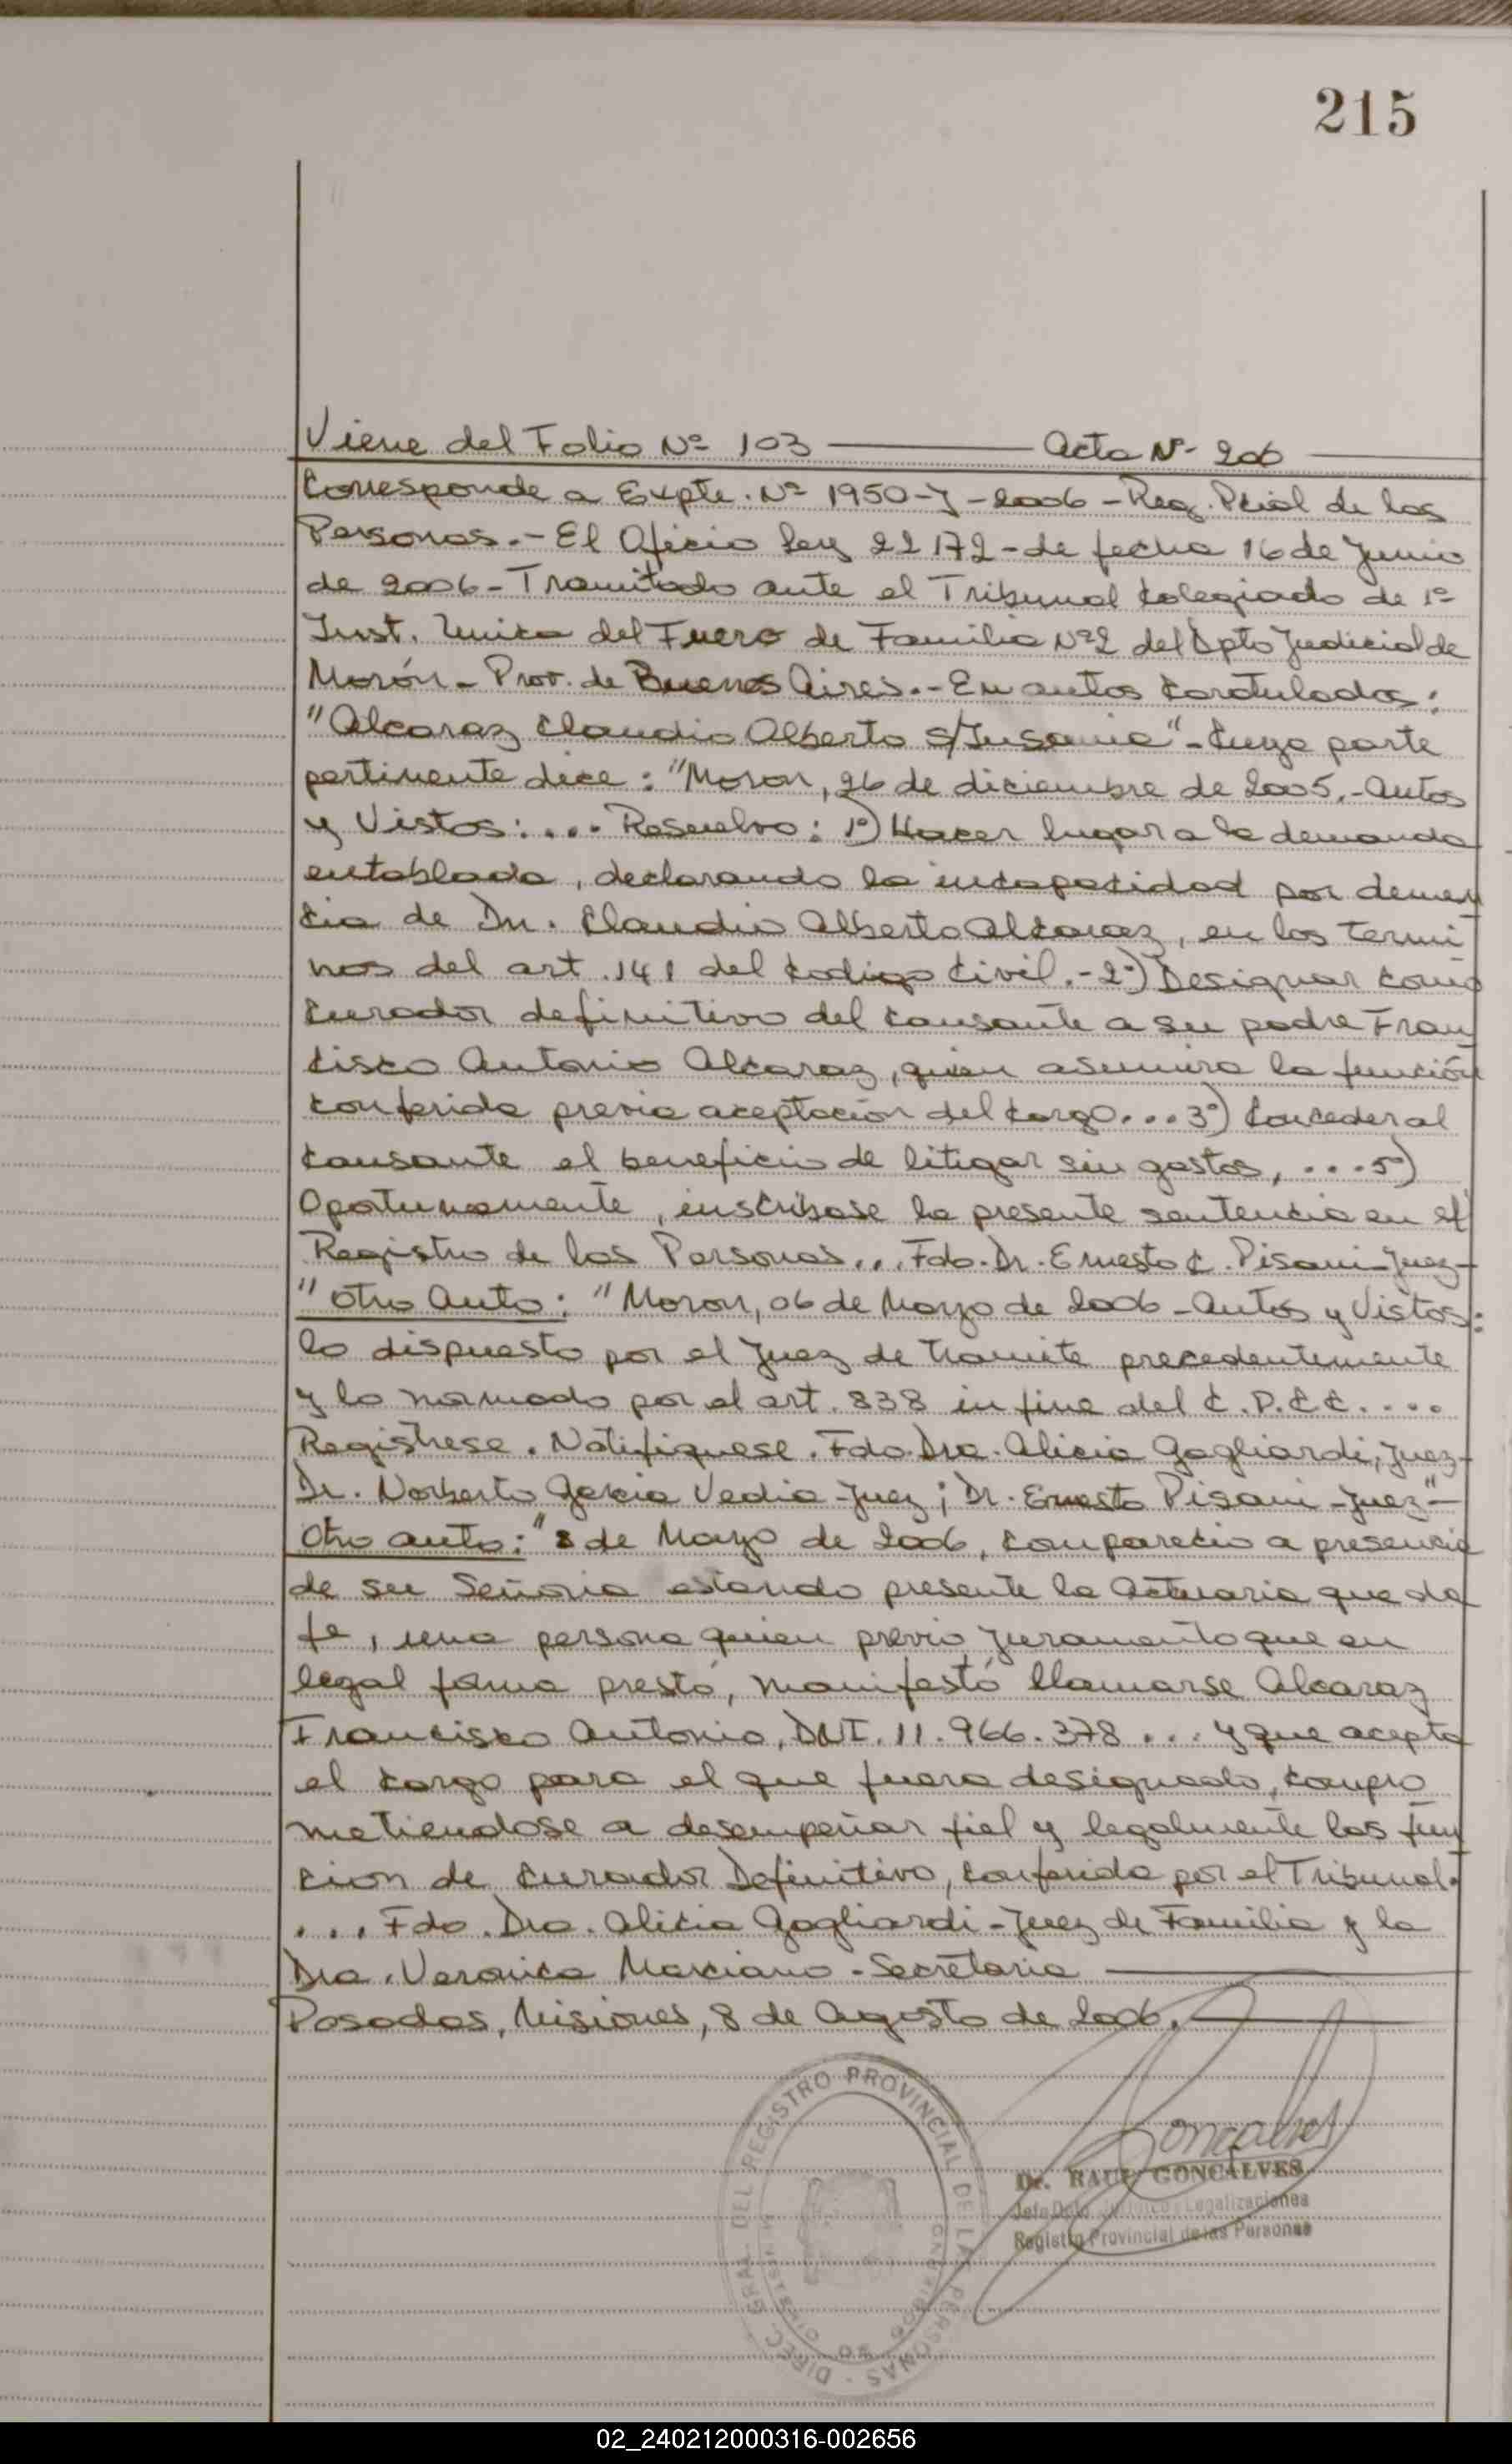 215
Viene del Folio Nº 103 ——— Acta Nº 206 ———
Corresponde a Expte. Nº 1950-J-2006 - Reg. Pcial de las
Personas.- El Oficio Ley 22172 - de fecha 16 de Junio
de 2006 - Tramitado ante el Tribunal Colegiado de 1º
Inst. Unica del Fuero de Familia Nº2 del Dpto Judicial de
Morón - Prov. de Buenos Aires.- En autos Caratulados:
"Alcaraz Claudio Alberto S/Insania" - Cuya parte
pertinente dice: "Moron, 26 de diciembre de 2005.- Autos
y Vistos: .... Resuelvo: 1º) Hacer lugar a la demanda
entablada, declarando la incapacidad por demen
cia de Dn. Claudio Alberto Alcaraz, en los termi
nos del art. 141 del Codigo Civil. - 2º) Designar como
Curador definitivo del Causante a su padre Fran
cisco Antonio Alcaraz, quien asumira la función
conferida previa aceptación del cargo... 3º) Conceder al
Causante el beneficio de litigar sin gastos, .... 5º)
Oportunamente, inscribase la presente sentencia en el
Registro de las Personas... Fdo. Dr. Ernesto C. Pisani - Juez-
" Otro Auto: "Moron, 06 de Marzo de 2006 - Autos y Vistos:
lo dispuesto por el Juez de tramite precedentemente
y lo normado por el art. 838 in fine del C.P.C.C. ....
Registrese. Notifiquese. Fdo. Dra. Alicia Gagliardi, Juez-
Dr. Norberto Garcia Vedia - Juez; Dr. Ernesto Pisani - Juez"-
Otro auto: "8 de Marzo de 2006, comparecio a presencia
de su Señoria estando presente la Actuaria que da
fe, una persona quien previo juramento que en
legal forma prestó, manifestó llamarse Alcaraz
Francisco Antonio, DNI. 11.966.378 .... y que acepta
el cargo para el que fuera designado, compro
metiendose a desempeñar fiel y legalmente las fun
cion de Curador Definitivo, conferida por el Tribunal.
.... Fdo. Dra. Alicia Gagliardi - Juez de Familia y la
Dra. Veronica Marciano - Secretaria ———
Posadas, Misiones, 8 de Agosto de 2006. ———
DIREC. GRAL. DEL REGISTRO PROVINCIAL DE LAS PERSONAS
Goncalves
Dr. RAUL GONCALVES
Jefe Dpto. Jurídico y Legalizaciones
Registro Provincial de las Personas
02_240212000316-002656